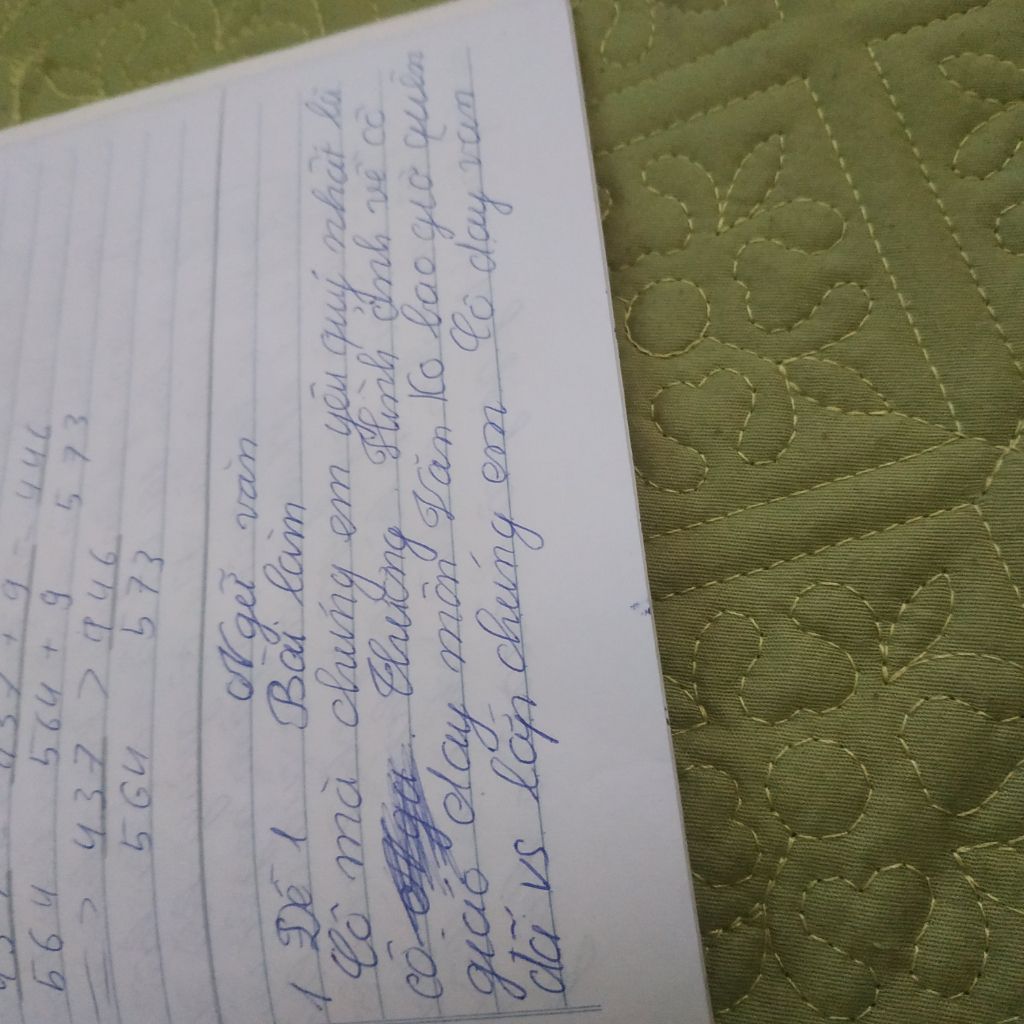 564 564 + 9 573
=> 437 > 446
564 573
Ngữ văn
1 Đề 1 Bài làm
Cô mà chúng em yêu quý nhất là
cô Thương. Hình ảnh về cô
giáo dạy môn Văn ko bao giờ quên
đối vs lớp chúng em Cô dạy văn